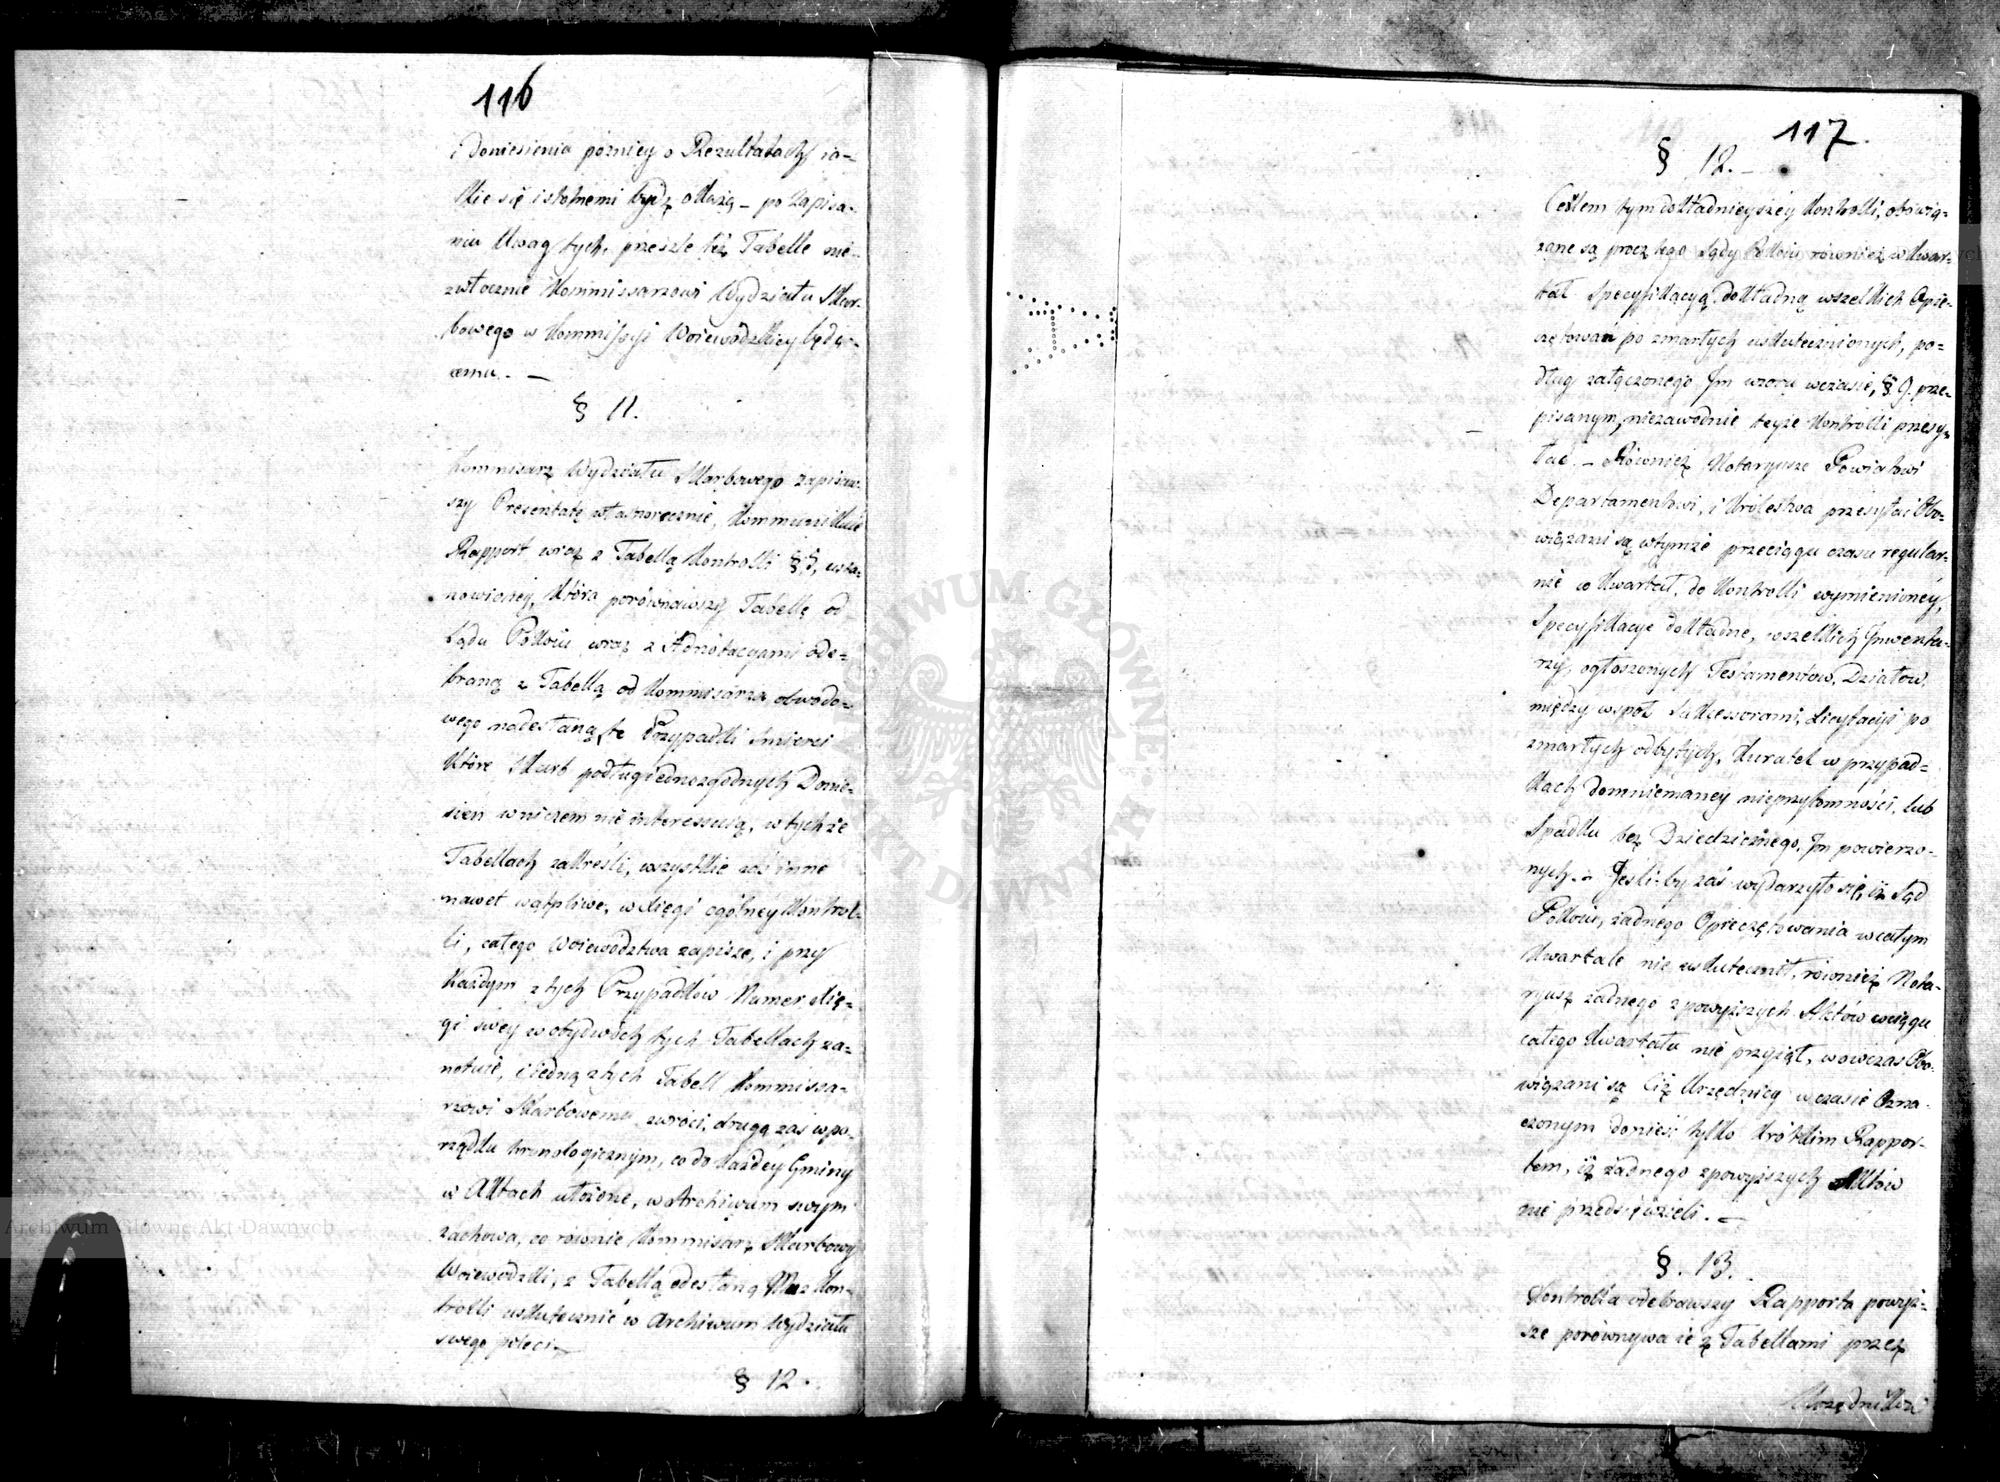 116
i doniesienia pózniey o Rezultatach ia-
kie się istotnemi bydz okażą – po zapisa-
niu Uwag tych, prześle też Tabelle nie-
zwłocznie Kommissarzowi Wydziału Skar-
bowego w Kommissyi Woiewodzkiey będą-
cemu. –
§ 11.
Kommissarz Wydziału Skarbowego zapisaw-
szy Presentatę własnoręcznie, Kommunikuie
Rapport wraz z Tabellą Kontrolli §, usta-
nowioney, która porównawszy Tabellę od
Sądu Pokoiu wraz z Adnotacyami ode-
braną z Tabellą od Kommissarza obwodo-
wego nadesłaną, te Przypadki śmierci
które Skarb podług iednozgodnych Donie-
sien w niczem nie interessuią, w tychże
Tabellach zakreśli, wszystkie zaś inne
nawet wątpliwe, w Xięgi ogólney Kontrol-
li, całego Woiewodztwa zapisze, i przy
każdym z tych Przypadków Numer Xię-
gi swey w obydwóch tych Tabellach za-
notuie, i iedną z tych Tabell Kommissa-
rzowi Skarbowemu zwróci, drugą zas w po-
rządku kronologicznym, co do każdey Gminy
w Aktach ułożone, w Archiwum swym
zachowa, co rownie Kommisarz Skarbowy
Woiewodzki, z Tabellą odesłaną Kon-
trolli uskutecznić w Archiwum Wydziału
swego poleci –
§ 12.
117.
§ 12. –
Celem tym dokładnieyszey Kontrolli, obowią-
zane są procz tego Sądy Pokoiu również w kwar-
tał Specyfikacyą dokładną wszelkich Opie-
czętowań po zmarłych uskutecznionych, po-
dług załączonego Im wzoru w czasie, § 9. prze-
pisanym, niezawodnie teyże Kontrolli przesy-
łać. – Również Notaryusze Powiatowi
Departamentowi, i Królestwa przesyłać Obo-
wiązani są w tymże przeciągu czasu regular-
nie co kwartał, do Kontrolli wymienioney,
Specyfikacye dokładne, wszelkich Inwenta-
rzy, ogłoszonych Testamentów, Działow,
między wspoł Sukcessorami, Licytacyi po
zmarłych odbytych, Kuratel w przypad-
kach domniemaney nieprzytomności, lub
Spadku bez Dziedzicznego, Im powierzo-
nych. – Jeśli by zaś wydarzyło się, iż Sąd
Pokoiu, żadnego Opieczętowania w całym
Kwartale nie uskutecznił, również Nota-
ryusz żadnego z powyższych Aktów w ciągu
całego kwartału nie przyiął, wowczas Obo-
wiązani są Ciż Urzędnicy w czasie Ozna-
czonym donieść tylko krótkim Rappor-
tem, iż żadnego z powyższych Aktów
nie przedsięwzieli. –
§. 13.
Kontrolla odebrawszy Rapporta powyż-
sze porównywa ie z Tabellami przez
Urzędników
Archiwum Główne Akt Dawnych
ARCHIWUM GŁÓWNE AKT DAWNYCH